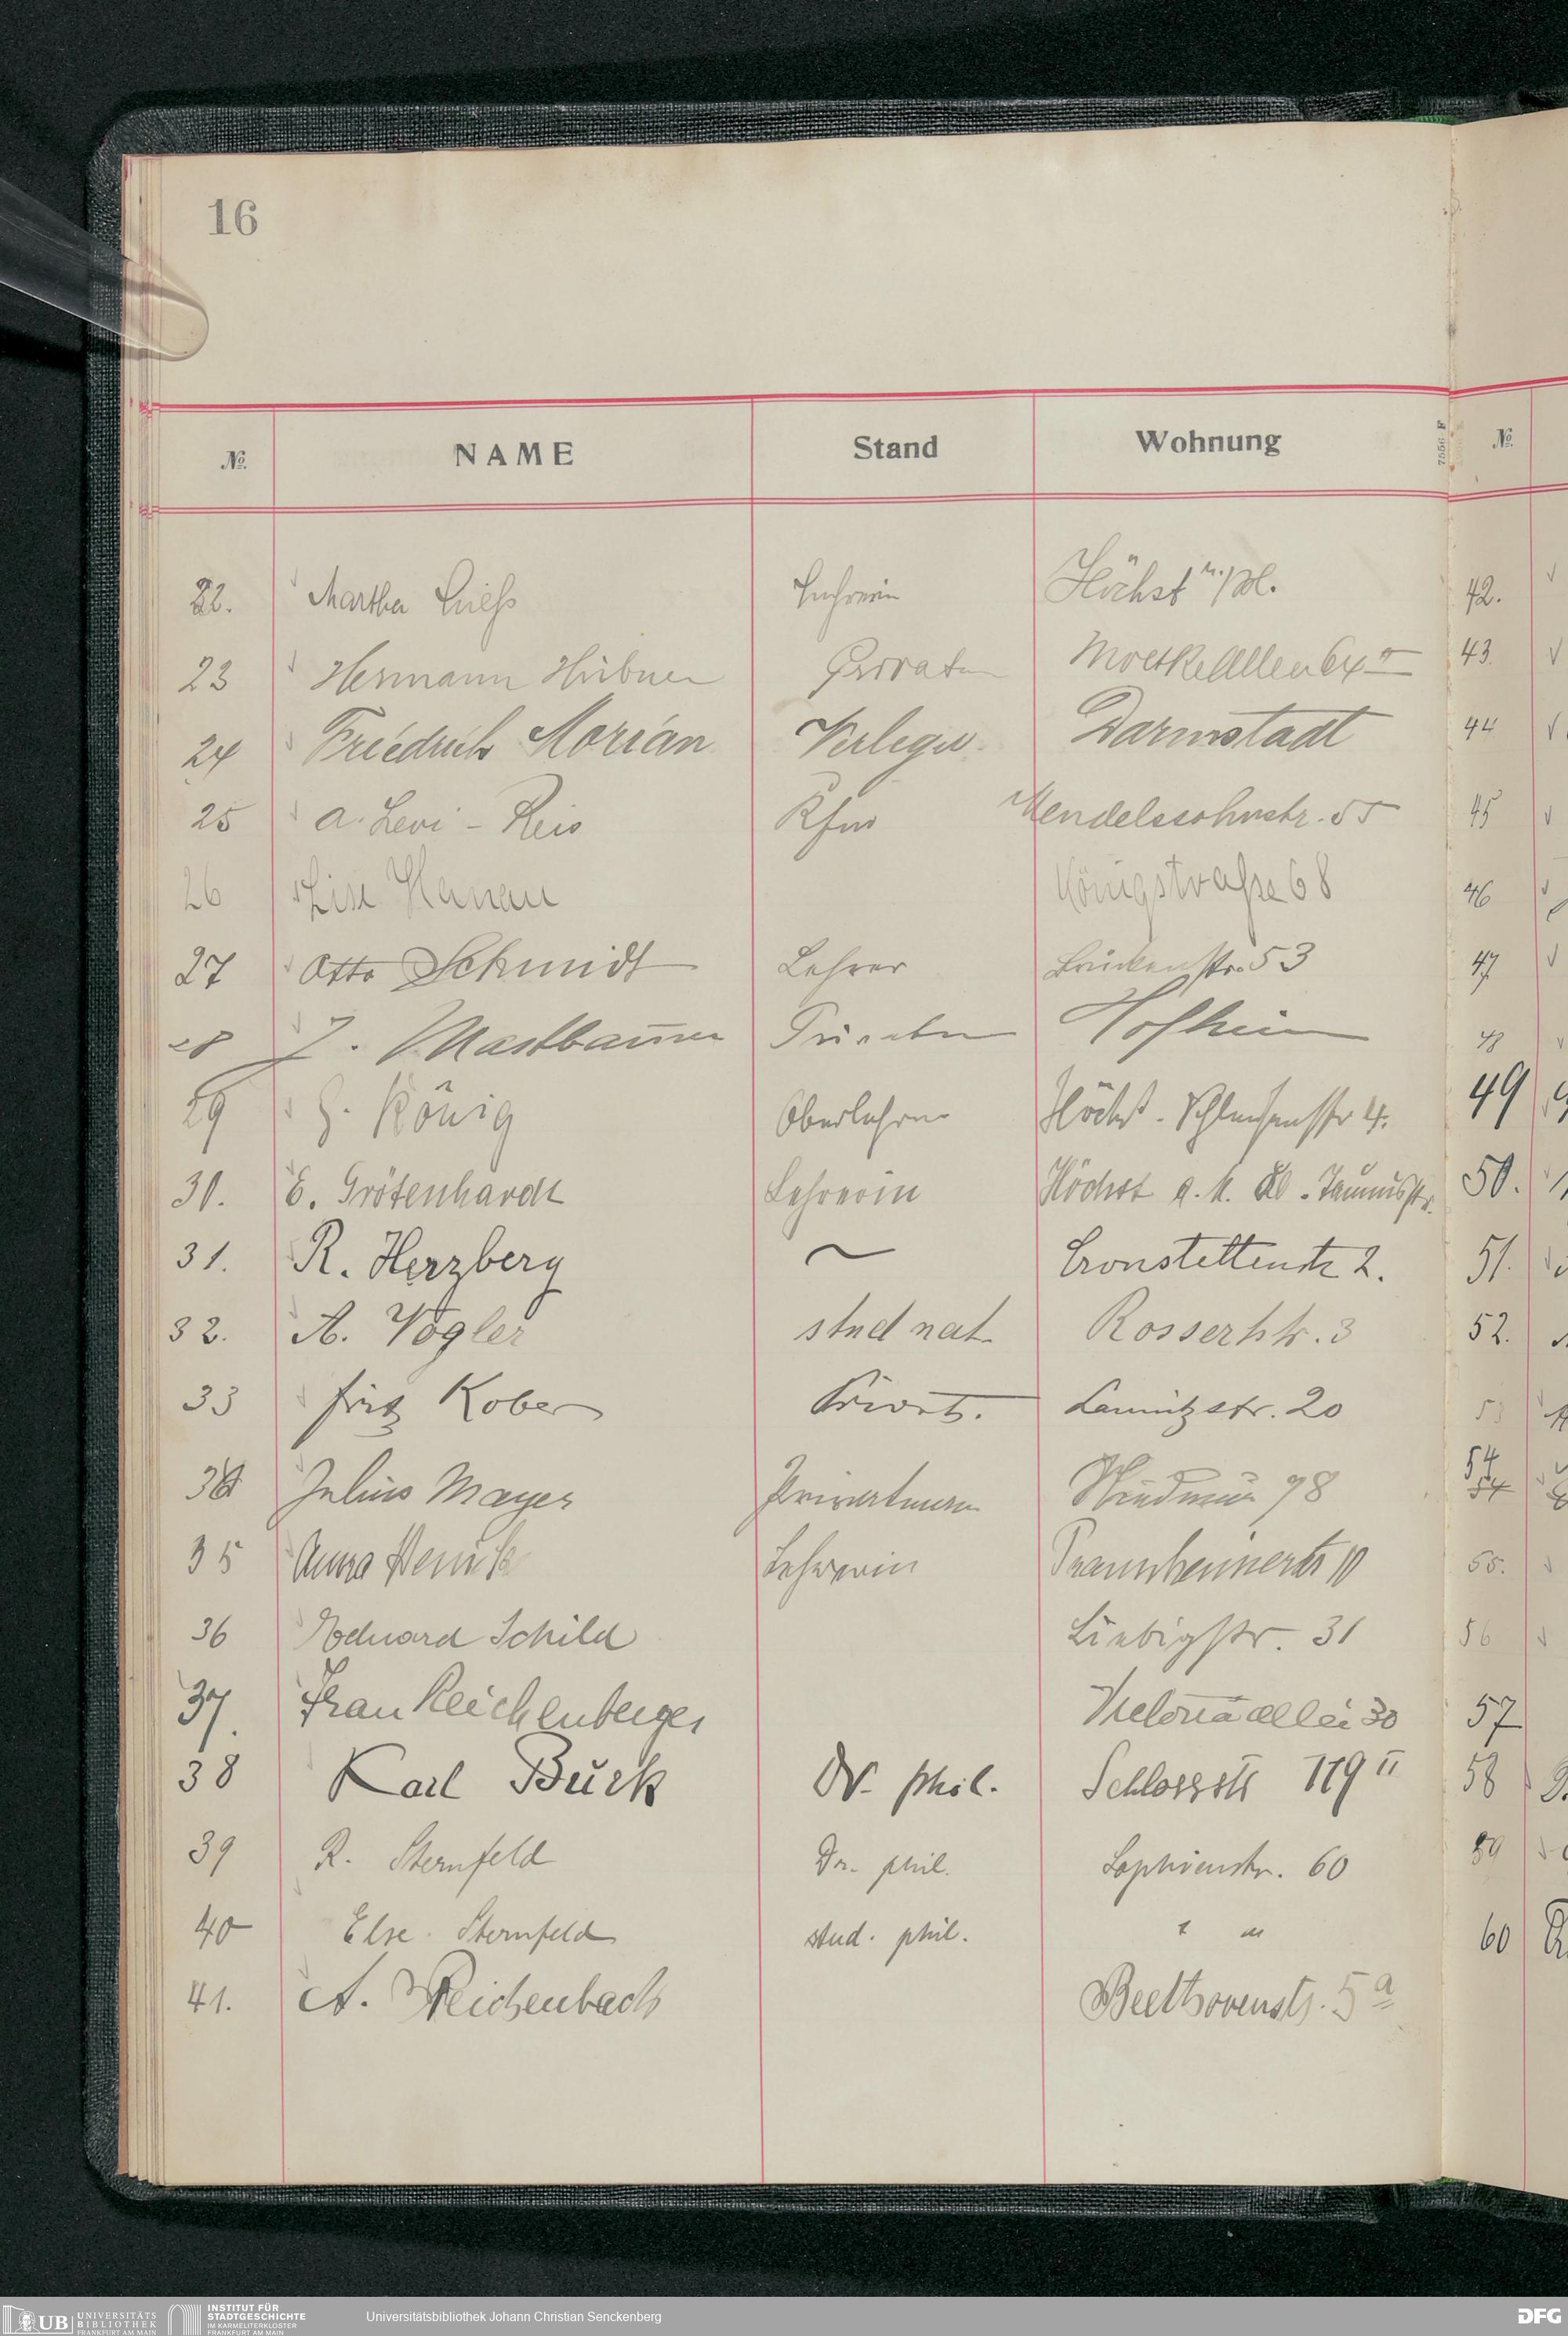 16
№ NAME Stand Wohnung 7556 F №
22. Martha Lehrerin Höchst a./M. 42.
23 Hermann Hübner Privatier Moltke Allee 64 II 43.
24 Friedrich Morian Verleger Darmstadt 44
25 A. Levi-Reis Kfm Mendelssohnstr. 55 45
26 Lise Hanau Königstraße 68 46
27 Otto Schmidt Lehrer Brückenstr. 53 47
28 J. Mastbaum Privatier Hofheim 48
29 H. König Oberlehrer Höchst - Schleusenstr 4. 49
30. E. Grötenhardt Lehrerin Höchst a. M. Taunusstr. 50.
31. R. Herzberg Cronstettenstr 2. 51.
32. A. Vogler stud nat. Rossertstr. 3 52.
33 Fritz Kober Privat. Launitzstr. 20 53
34 Julius Mayer Privatmann 98 54 54
35 Anna Lehrerin Praunheimerstr 10 55.
36 Eduard Schild Liebigstr. 31 56
37. Frau Reichenberger Victoria allee 30 57
38 Karl Buck Dr. phil. Schlossstr 119 II 58
39 R. Sternfeld Dr. phil. Sophienstr. 60 59
40 Else Sternfeld stud. phil. " " 60
41. A. Reichenbach Beethovenstr. 5a
UB UNIVERSITÄTS BIBLIOTHEK FRANKFURT AM MAIN
INSTITUT FÜR STADTGESCHICHTE IM KARMELITERKLOSTER FRANKFURT AM MAIN
Universitätsbibliothek Johann Christian Senckenberg
DFG